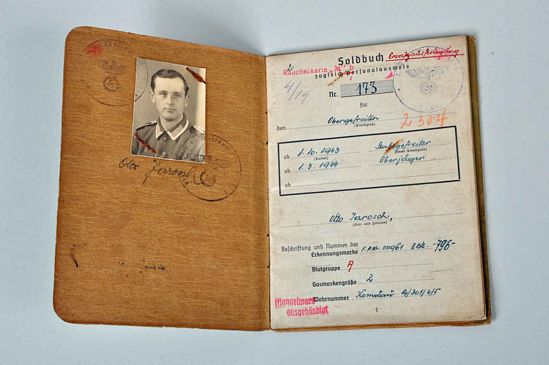 Otto Jarosch
Soldbuch Ersatzausfertigung
2
Raucherkarie
zugleich Personalausweis
4/19
Nr. 173
für
den Obergefreiten
(Dienstgrad)
2304
ab 1.10.1943 Stabsgefreiter
(Datum)
ab 1.3.1944 Oberjäger
ab
Otto Jarosch,
(Vor- und Zuname)
Beschriftung und Nummer der
Erkennungsmarke 00961 -796-
Blutgruppe A
Gasmaskengröße 2
Wehrnummer Komotau
Mangelware
ausgehändigt
1